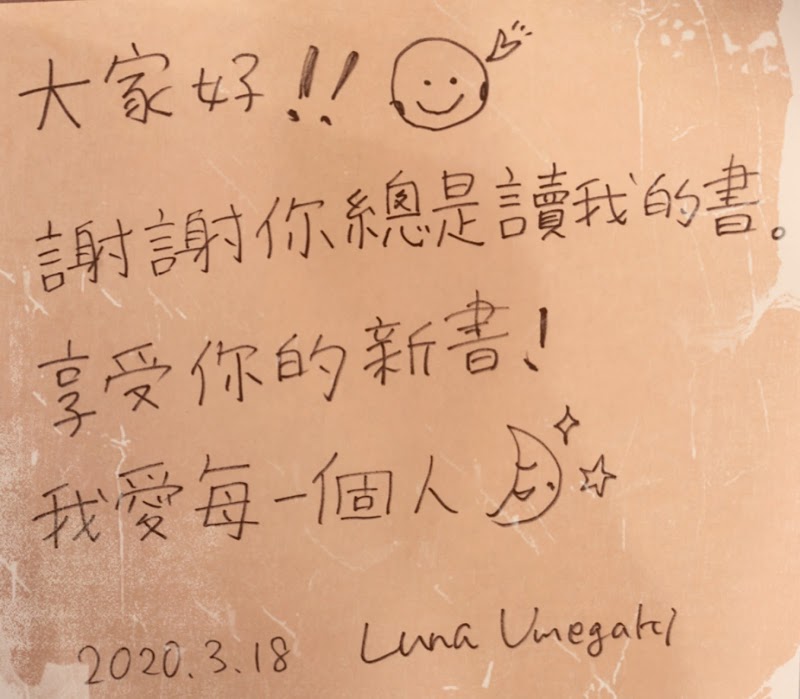 大家好!!
謝謝你總是讀我的書。
享受你的新書!
我愛每一個人
2020.3.18 Luna Umegaki